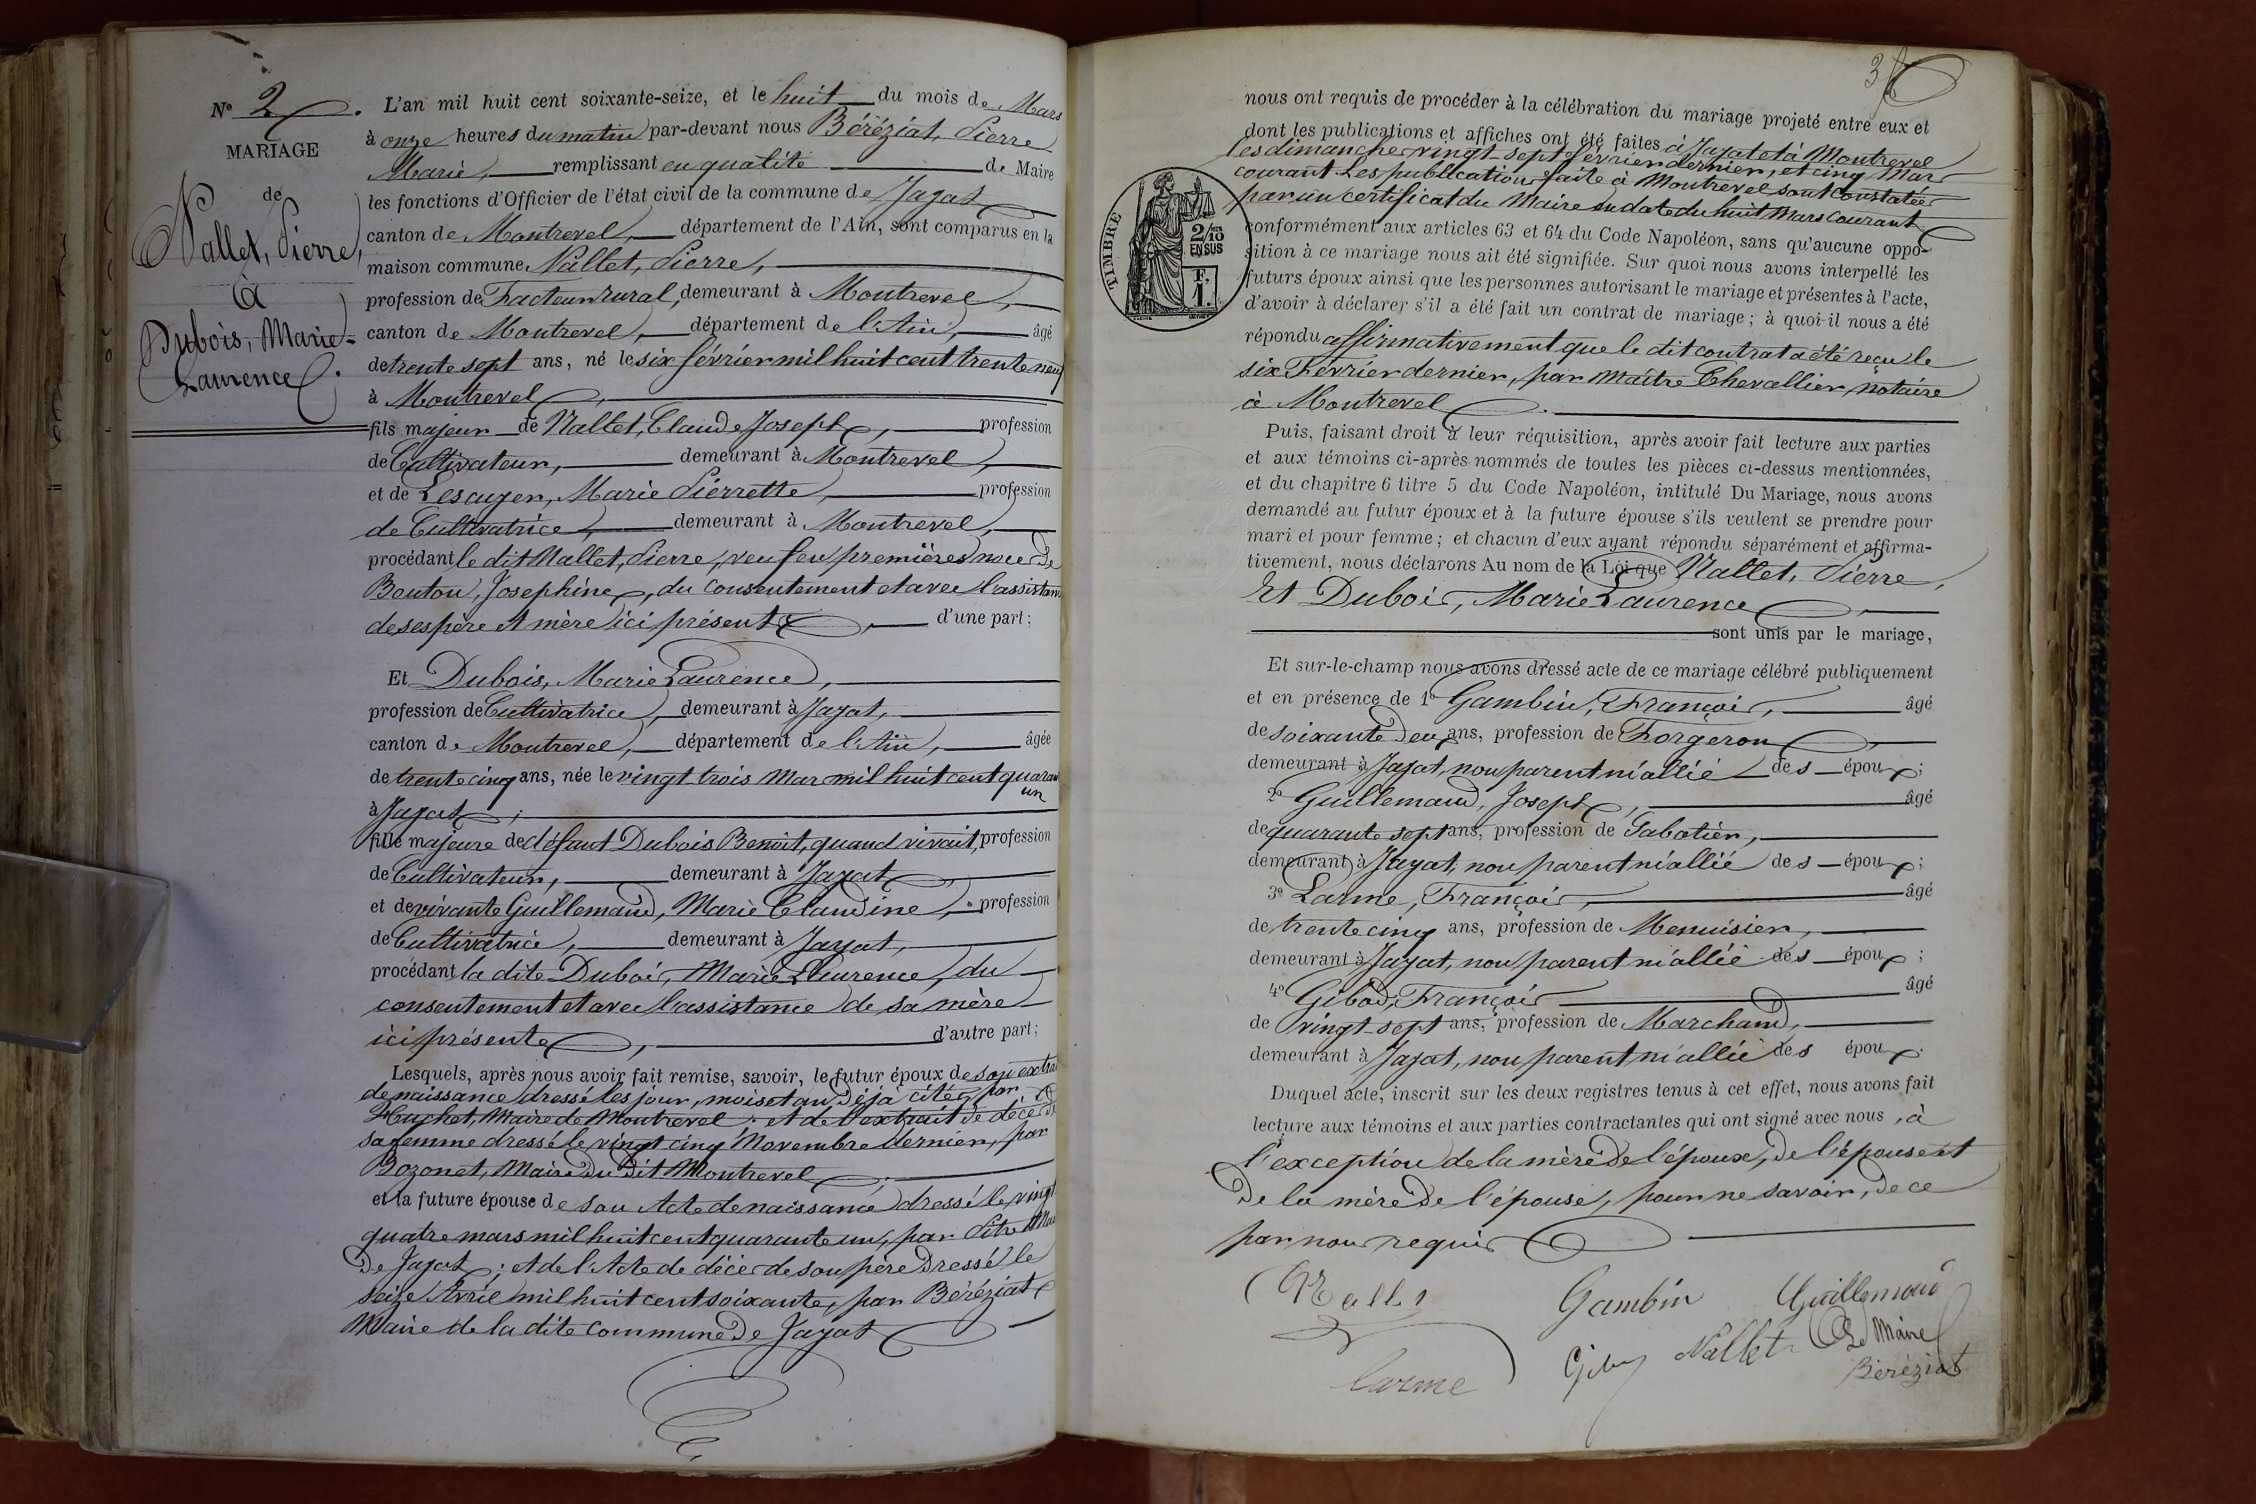 Nº 2.
MARIAGE
de
Nallet, Pierre,
à
Dubois, Marie-
Laurence.
L'an mil huit cent soixante-seize, et le huit du mois de Mars
à onze heures du matin par-devant nous Béréziat, Pierre
Marie, remplissant en qualité de Maire
les fonctions d'Officier de l'état civil de la commune de Jayat
canton de Montrevel, département de l'Ain, sont comparus en la
maison commune Nallet, Pierre,
profession de Facteur rural, demeurant à Montrevel,
canton de Montrevel, département de l'Ain, âgé
de trente sept ans, né le six février mil huit cent trente neuf
à Montrevel,
fils majeur de Nallet, Claude Joseph, profession
de Cultivateur, demeurant à Montrevel,
et de Lesayer, Marie Pierrette, profession
de Cultivatrice, demeurant à Montrevel,
procédant le dit Nallet, Pierre, veuf en premières noces de
Bouton, Josephine, du consentement et avec l'assistance
de ses père et mère ici présents, d'une part;
Et Dubois, Marie Laurence,
profession de Cultivatrice, demeurant à Jayat,
canton de Montrevel, département de l'Ain, âgée
de trente cinq ans, née le vingt trois Mars mil huit cent quarante
un
à Jayat;
fille majeure de défunt Dubois Benoit, quand vivait, profession
de Cultivateur, demeurant à Jayat
et de vivante Guillemaud, Marie Claudine, profession
de Cultivatrice, demeurant à Jayat,
procédant la dite Dubois, Marie Laurence, du
consentement et avec l'assistance de sa mère
ici présente, d'autre part;
Lesquels, après nous avoir fait remise, savoir, le futur époux de son extrait
de naissance dressé les jour, mois et an déjà cités, par
Huchet, Maire de Montrevel; et de l'extrait de décès de
sa femme dressé le vingt cinq Novembre dernier, par
Bozonet, Maire du dit Montrevel;
et la future épouse de son Acte de naissance dressé le vingt
quatre mars mil huit cent quarante un, par Pitre Maire
de Jayat; et de l'Acte de décès de son père dressé le
seize Avril mil huit cent soixante, par Béréziat
Maire de la dite commune de Jayat
3
nous ont requis de procéder à la célébration du mariage projeté entre eux et
dont les publications et affiches ont été faites à Jayat et à Montrevel
les dimanches vingt-sept février dernier, et cinq Mars
courant. Les publications faites à Montrevel sont constatées
par un certificat du Maire en date du huit Mars courant
TIMBRE
2/10
EN SUS
F.
1.
conformément aux articles 63 et 64 du Code Napoléon, sans qu'aucune oppo-
sition à ce mariage nous ait été signifiée. Sur quoi nous avons interpellé les
futurs époux ainsi que les personnes autorisant le mariage et présentes à l'acte,
d'avoir à déclarer s'il a été fait un contrat de mariage; à quoi il nous a été
répondu affirmativement que le dit contrat a été reçu le
six Février dernier, par Maître Chevallier, notaire
à Montrevel.
Puis, faisant droit à leur réquisition, après avoir fait lecture aux parties
et aux témoins ci-après nommés de toutes les pièces ci-dessus mentionnées,
et du chapitre 6 titre 5 du Code Napoléon, intitulé Du Mariage, nous avons
demandé au futur époux et à la future épouse s'ils veulent se prendre pour
mari et pour femme; et chacun d'eux ayant répondu séparément et affirma-
tivement, nous déclarons Au nom de la Loi que Nallet, Pierre,
Et Dubois, Marie Laurence
sont unis par le mariage,
Et sur-le-champ nous avons dressé acte de ce mariage célébré publiquement
et en présence de 1º Gambin, François, âgé
de soixante deux ans, profession de Forgeron
demeurant à Jayat, non parent ni allié des époux;
2º Guillemaud, Joseph, âgé
de quarante sept ans, profession de Sabotier,
demeurant à Jayat, non parent ni allié des époux;
3º Larme, François, âgé
de trente cinq ans, profession de Menuisier,
demeurant à Jayat, non parent ni allié des époux;
4º Gibod, François âgé
de vingt-sept ans, profession de Marchand,
demeurant à Jayat, non parent ni allié des époux.
Duquel acte, inscrit sur les deux registres tenus à cet effet, nous avons fait
lecture aux témoins et aux parties contractantes qui ont signé avec nous, à
l'exception de la mère de l'époux, de l'épouse et
de la mère de l'épouse, pour ne savoir, de ce
par nous requis
Nallet Gambin Guillemaud
Larme Nallet Le Maire
Béréziat